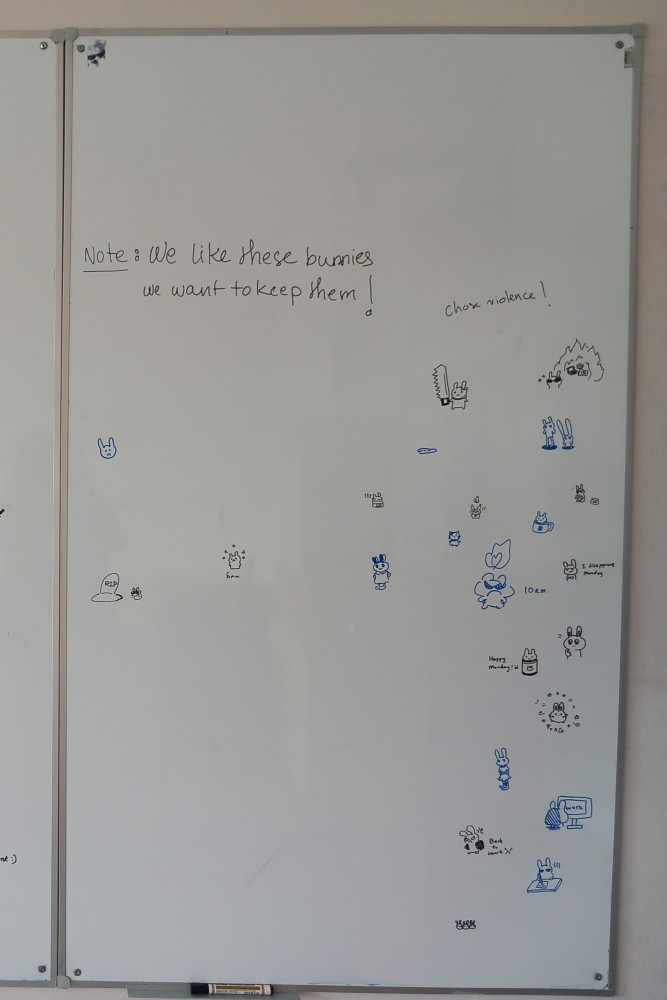 Note: We like these bunnies
we want to keep them!
chose violence!
RIP
6pm
10am
I disapprove
Monday
Happy
Monday!
WORK
Back
to
work
nt :)